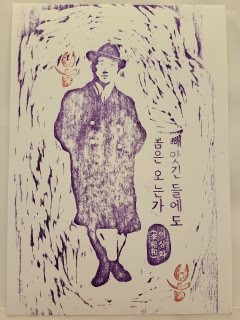 빼앗긴 들에도
봄은 오는가
이상화
李相和